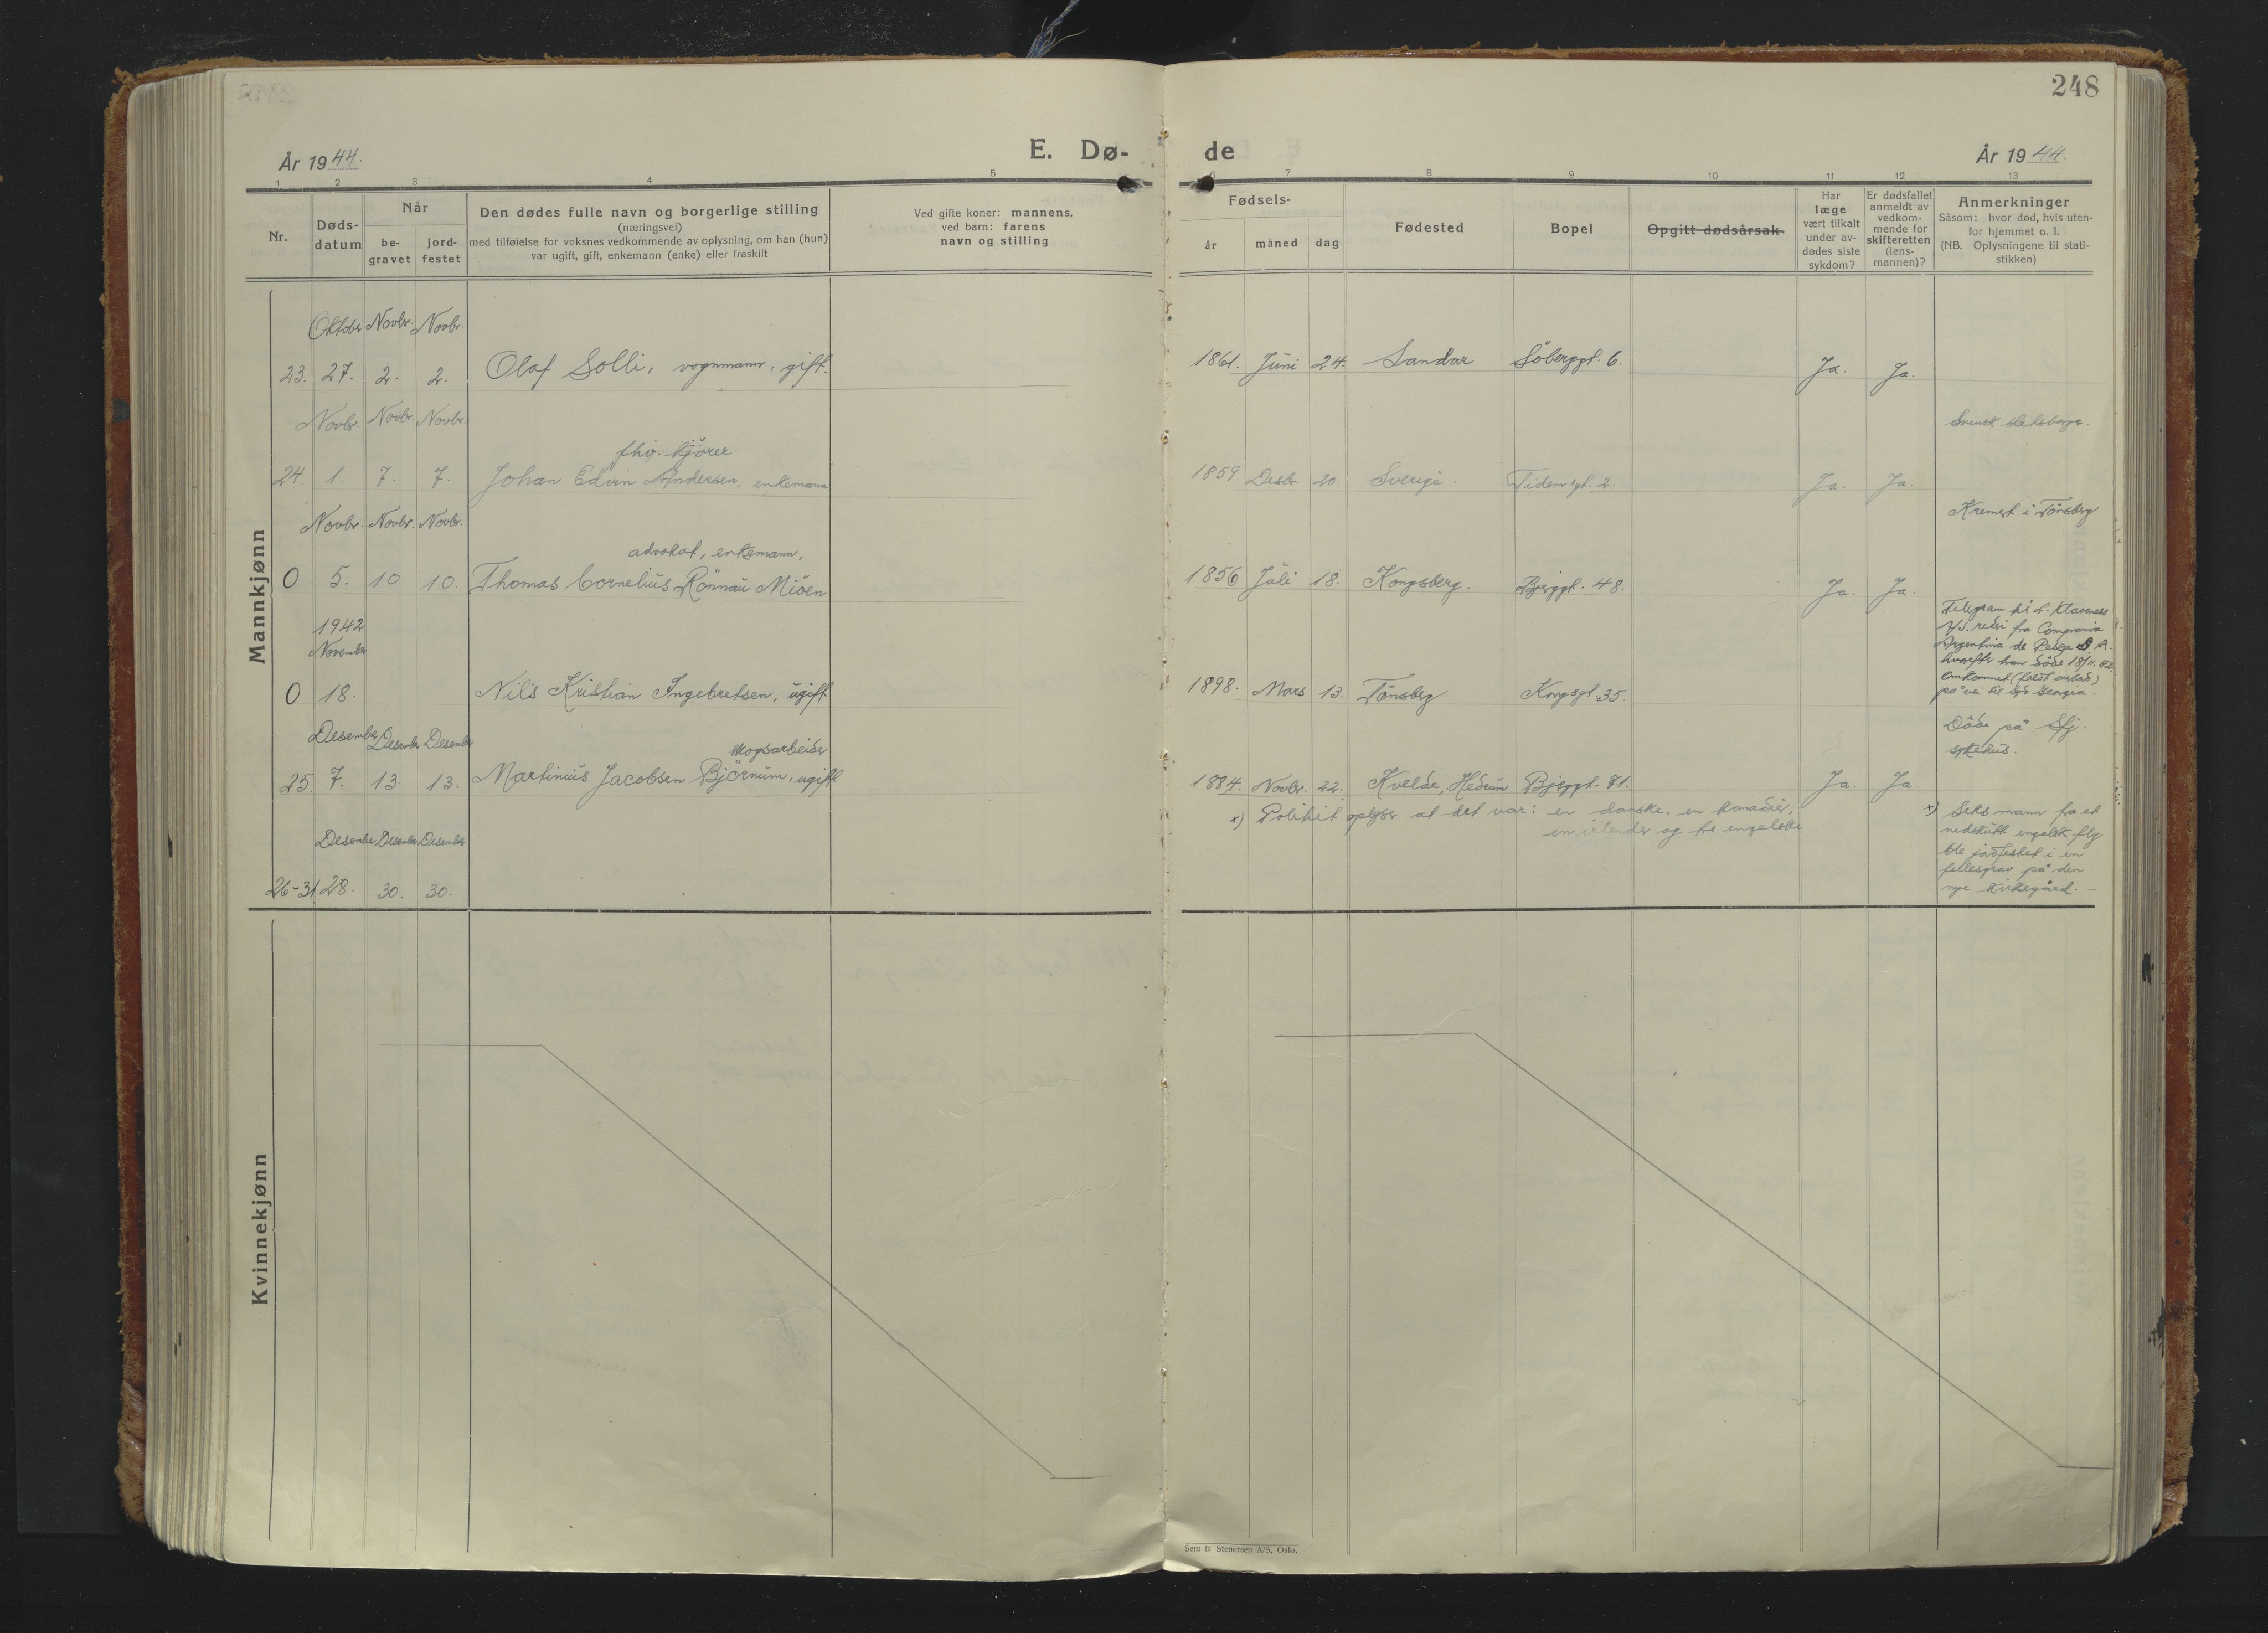 248
År 1944.
E. Dø-
de
År 1944.
1 2 3 4 5 6 7 8 9 10 11 12 13
Nr.
Døds-
datum
Når
be-
gravet
jord-
festet
Den dødes fulle navn og borgerlige stilling
(næringsvei)
med tilføielse for voksnes vedkommende av oplysning, om han (hun)
var ugift, gift, enkemann (enke) eller fraskilt
Ved gifte koner: mannens,
ved barn: farens
navn og stilling
Fødsels-
år måned dag
Fødested
Bopel
Opgitt dødsårsak.
Har
læge
vært tilkalt
under av-
dødes siste
sykdom?
Er dødsfallet
anmeldt av
vedkom-
mende for
skifteretten
(lens-
mannen)?
Anmerkninger
Såsom: hvor død, hvis uten-
for hjemmet o. l.
(NB. Oplysningene til stati-
stikken)
Mannkjønn
Oktober Novbr. Novbr.
23. 27. 2. 2. Olaf Solli, vognmann, gift. 1861. Juni 24. Sandar Söberggt. 6. Ja. Ja.
Novbr. Novbr. Novbr.
Svensk statsborger.
fhv. kjörer
24. 1. 7. 7. Johan Edvin Andersen, enkemann 1859 Desbr. 20. Sverige. Tidemsgt. 2. Ja. Ja.
Novbr. Novbr. Novbr.
Kremert i Tönsberg
advokat, enkemann,
0 5. 10 10. Thomas Cornelius Rönnau Miöen 1856 Juli 18. Kongsberg. Bjerggt. 48. Ja. Ja.
1942
November
Telegram til A. Klaveness
A/S. rederi fra Compania
Argentina de Pesca S. A.
hvorefter han döde 18/11. 42.
Omkommet
på vei til Syd Georgia.
0 18. Nils Kristian Ingebretsen, ugift 1898. Mars 13. Tönsberg Kongsgt. 35.
Desember Desember Desember
Döde på Sfj.
sykehus.
skogsarbeider
25. 7. 13. 13. Martinius Jacobsen Björnum, ugift 1884. Novbr. 22. Kvelde, Hedrum Bjerggt. 71. Ja. Ja.
x) Politiet oplyser at det var: en danske, en kanadier,
en irlender og tre engelske
Desember Desember Desember
x) Seks mann fra et
nedskutt engelsk fly
ble jordfestet i en
fellesgrav på den
nye kirkegård.
26-31 28. 30. 30.
Kvinnekjønn
Sem & Stenersen A/S, Oslo.